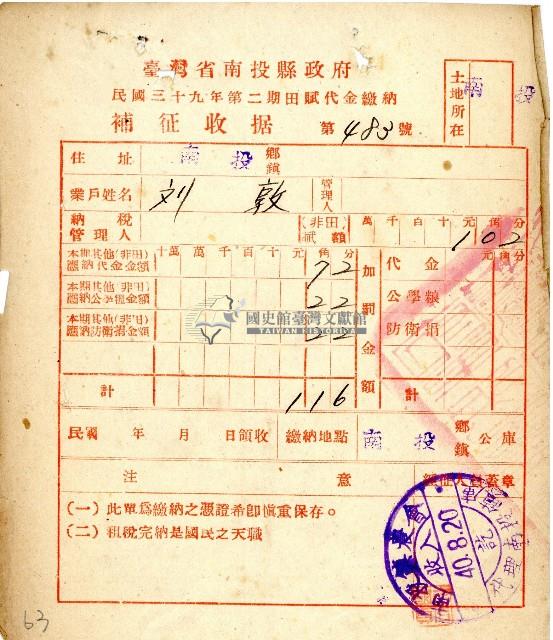 臺灣省南投縣政府
民國三十九年第二期田賦代金繳納
補征收据 第483號
土地所在 南投
住址 南投 鄉鎮
業戶姓名 刘敦 管理人
納稅管理人 (非田)賦額 萬千百十元角分 102
本期其他(非田)應納代金金額 十萬萬千百十元角分 72
本期其他(非田)應納公學糧金額 22
本期其他(非田)應納防衛捐金額 22
加罰金額 代金 元角分
公學粮
防衛捐
計 116 計
國史館臺灣文獻館
TAIWAN HISTORICA
民國 年 月 日領收 繳納地點 南投 鄉鎮 公庫
注意 經征人員蓋章
(一)此單爲繳納之憑證希卽愼重保存。
(二)租稅完納是國民之天職
40.8.20
收入
63